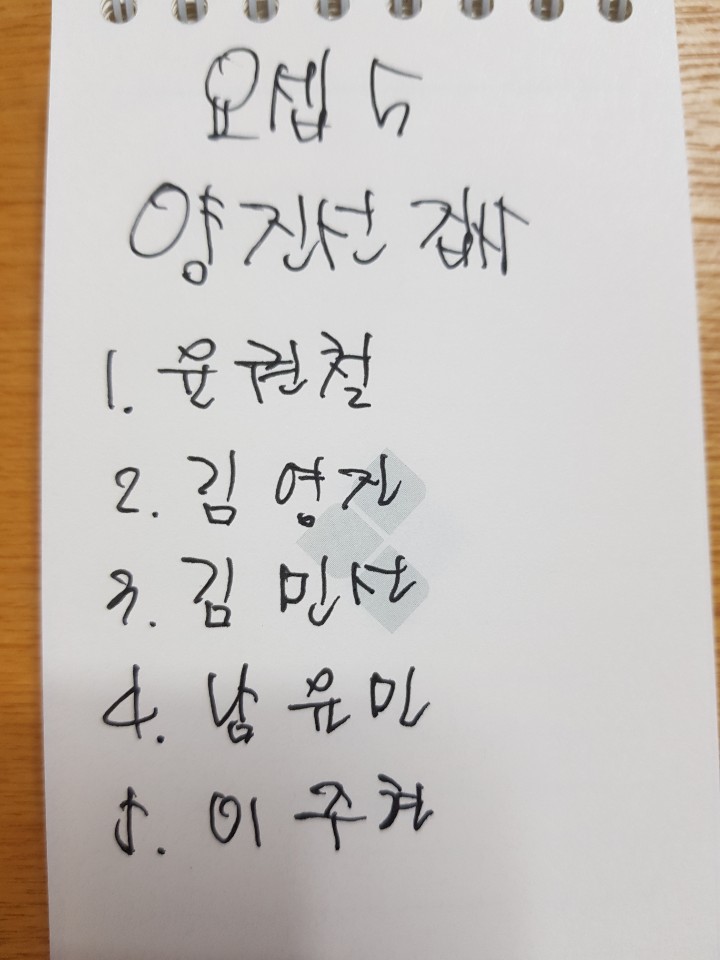 요셉 5
양진선 집사
1. 윤권철
2. 김 영진
3. 김 민선
4. 남 윤민
5. 이 주현